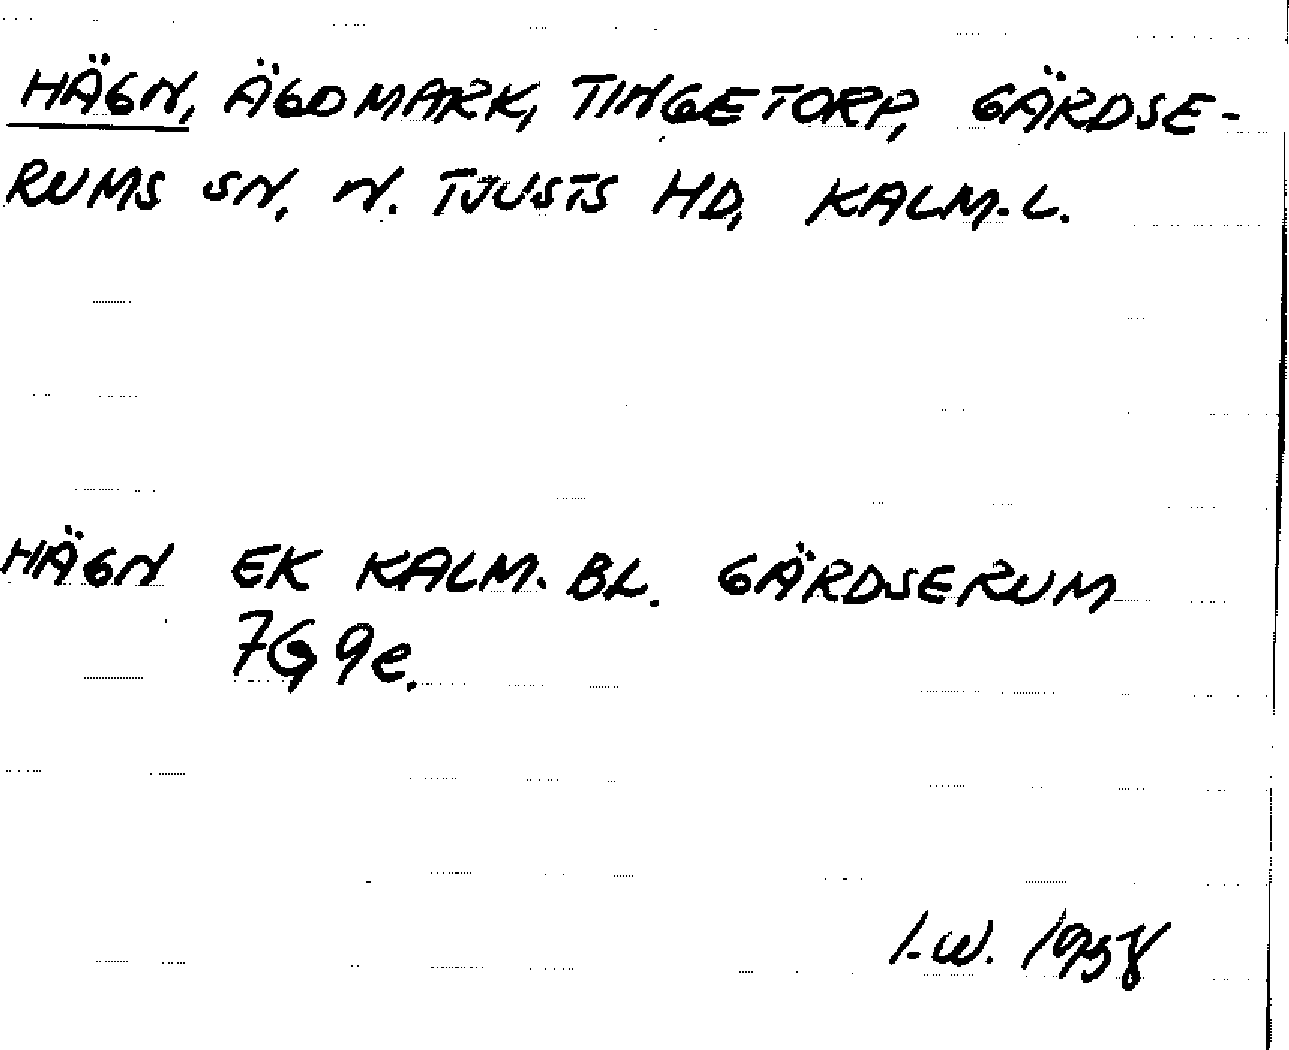 HÄGN, ÄGOMARK, TINGETORP, GÄRDSE-
RUMS SN, N. TJUSTS HD, KALM. L.
HÄGN EK KALM. BL. GÄRDSERUM
7G9e.
I.W. 1958